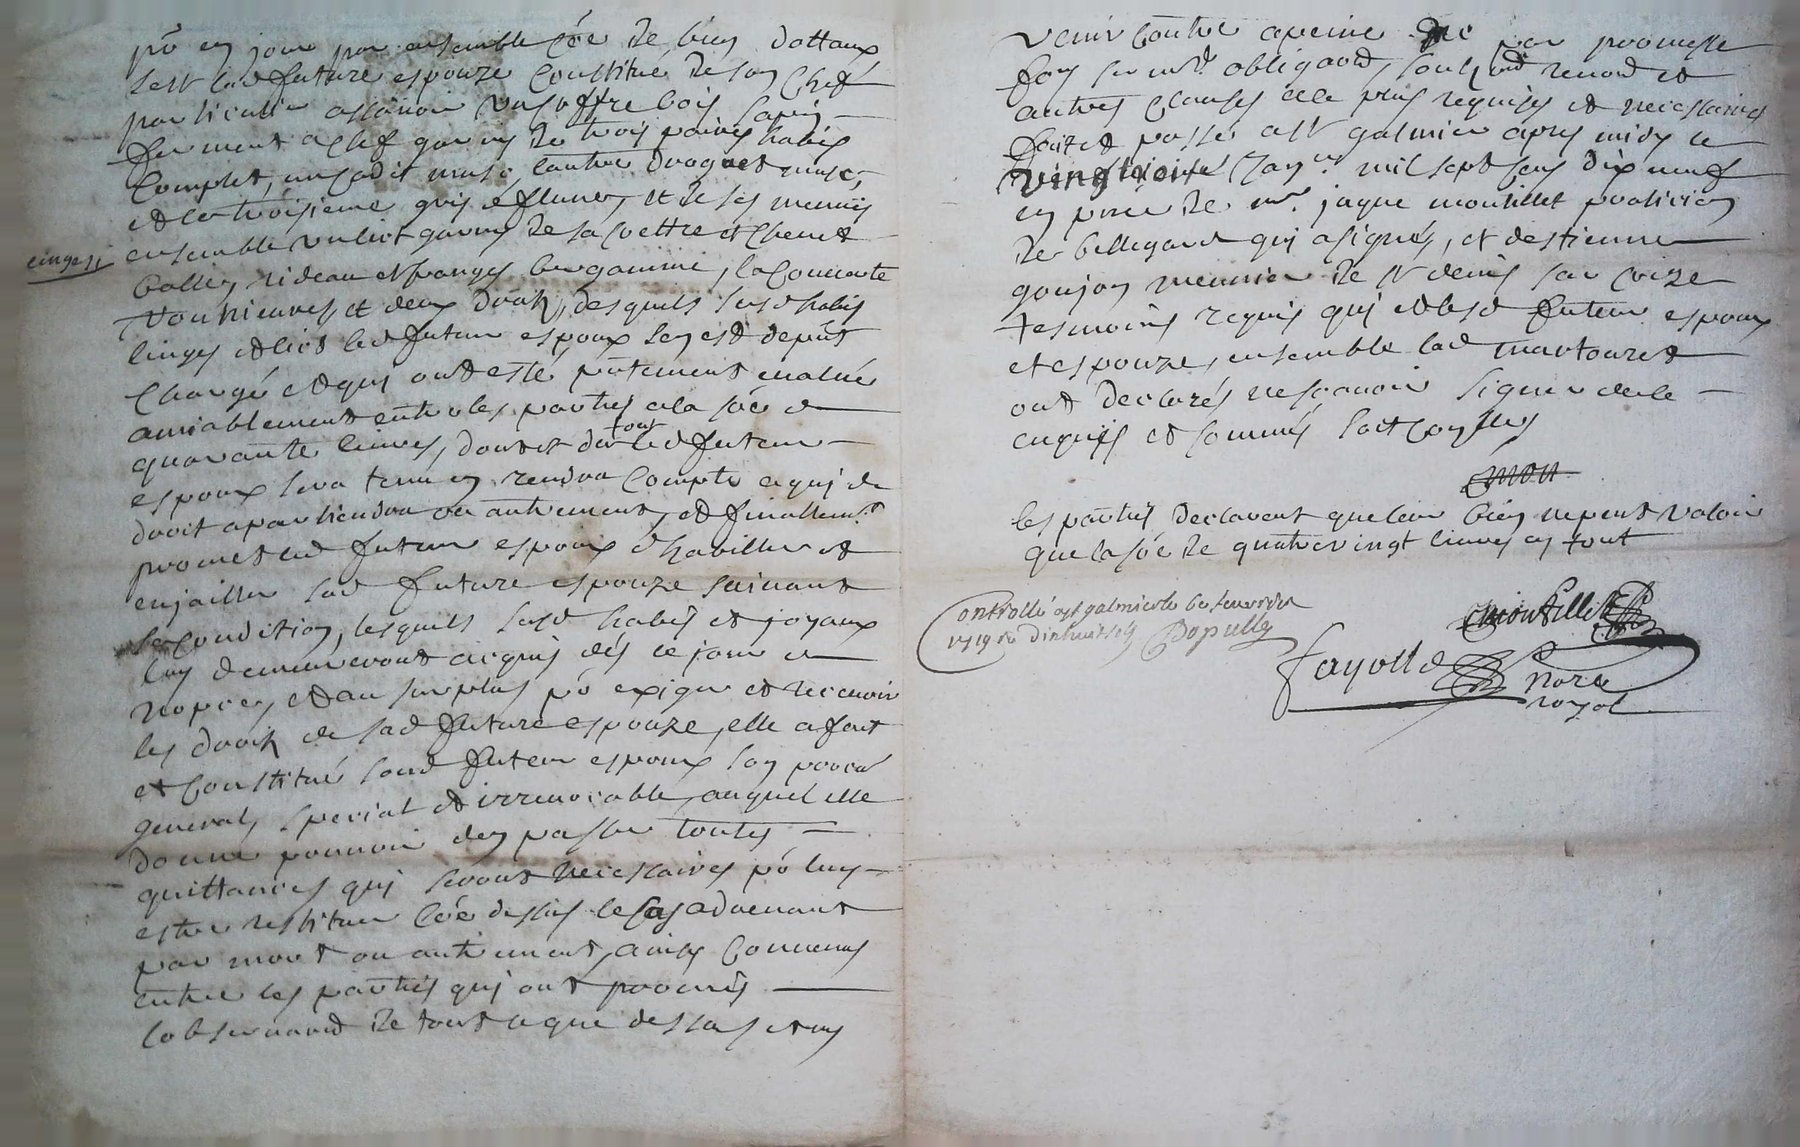 po en jouir par ensemble cõe de bien dottaux
sest lad future espouze constitué de son chef
particulier assavoir un coffre bois sapin
fermant a clef garny de trois paires habis
complet, un cadit musc, lautre droguet musc,
et le troisieme gris et de ses menus
linges //
ensemble un lict garny de sa coettre et chevet
rideau et franges bergamme, la couverte
et deux draps, desquels susd habis
linges et lict led futeur espoux sen est depñt
chargé et qui ont esté pñtement evalués
amiablement entre les parties a la sõe de
quarante livres, dont et du tout led futeur
espoux sera tenu en rendre compte a qui de
droit apartiendra ou autrement, et finallemt
promet led futeur espoux dhabiller et
enjailler sad future espouze suivant
sa condition, lesquels susd habis et joyaux
luy demeureront acquis dés le jour de
nopces, et au surplus po exiger et recevoir
les droits de sad future espouze, elle a fait
et constitué sond futeur espoux son procur
general, special et irrevocable, auquel elle
donne pouvoir den passer toutes
quittances qui seront necessaires po luy
estre restitue cõe dessus le cas advenant
par mort ou autrement, ainsy convenu
entre les parties qui ont promis
lobservaõn de tout ce que dessus et ny
venir contre a peine par promesse
foy serment obligaõn, renonõn et
autres clauses a ce plus requises et necessaires
fait et passé a St galmier apres midy le
vingt Janr mil sept cens dix neuf
en pñce de mr. jaque montillet praticien
de bellegarde qui a signé, et destienne
goujon meunier de st denis sur coize
tesmoins requis qui et lesd futeur espoux
et espouze, ensemble lad
ont declarés ne scavoir signer de ce
enquis et sommés
les parties declarent que leur bien ne peut valoir
que la sõe de quatrevingt livres en tout
Controllé a st galmier le 6e fevrier
1719 Popully
Montillet
Fayolle
Nore
royal